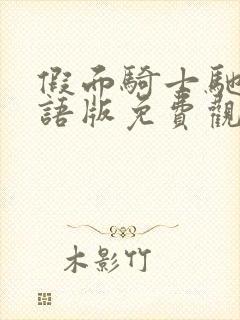 假面騎士馳
語版免費觀
木影竹